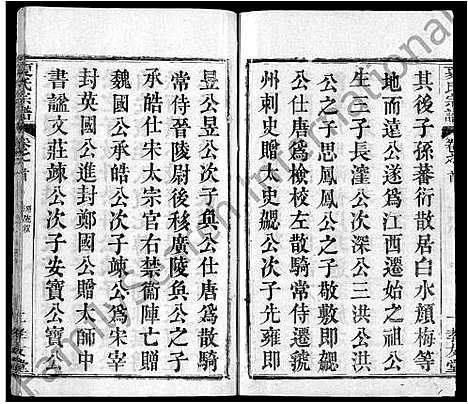 其後子孫蕃衍散居白水顏梅等
地而遠公遂爲江西遷始之祖公
生三子長瀍公次深公三洪公洪
公之子思鳳鳳公之子敬卽卽
公仕唐爲左散騎常侍遷虢
州刺史贈太史勰公次子先雍卽
昱公昱公次子奐公仕唐爲散騎
常侍晉陵尉後移廣陵奐公之子
承皓仕宋太宗官右禁衞陣亡贈
魏國公承皓公次子竦公爲宋宰
封英國公進封鄭國公贈太師中
書謚文莊竦公次子安寶公寶公
夏氏宗譜 卷之首
夏氏宗譜 卷之首
孝友堂